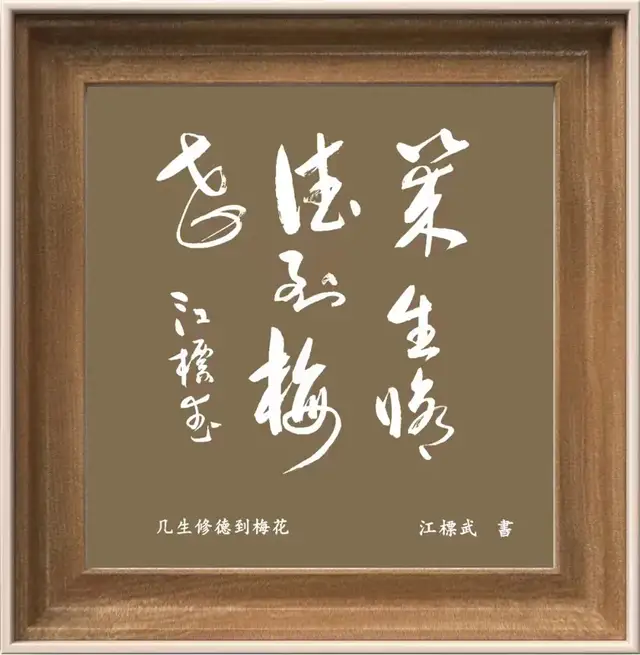 幾生修
德到梅
花 江標武
几生修德到梅花
江標武 書